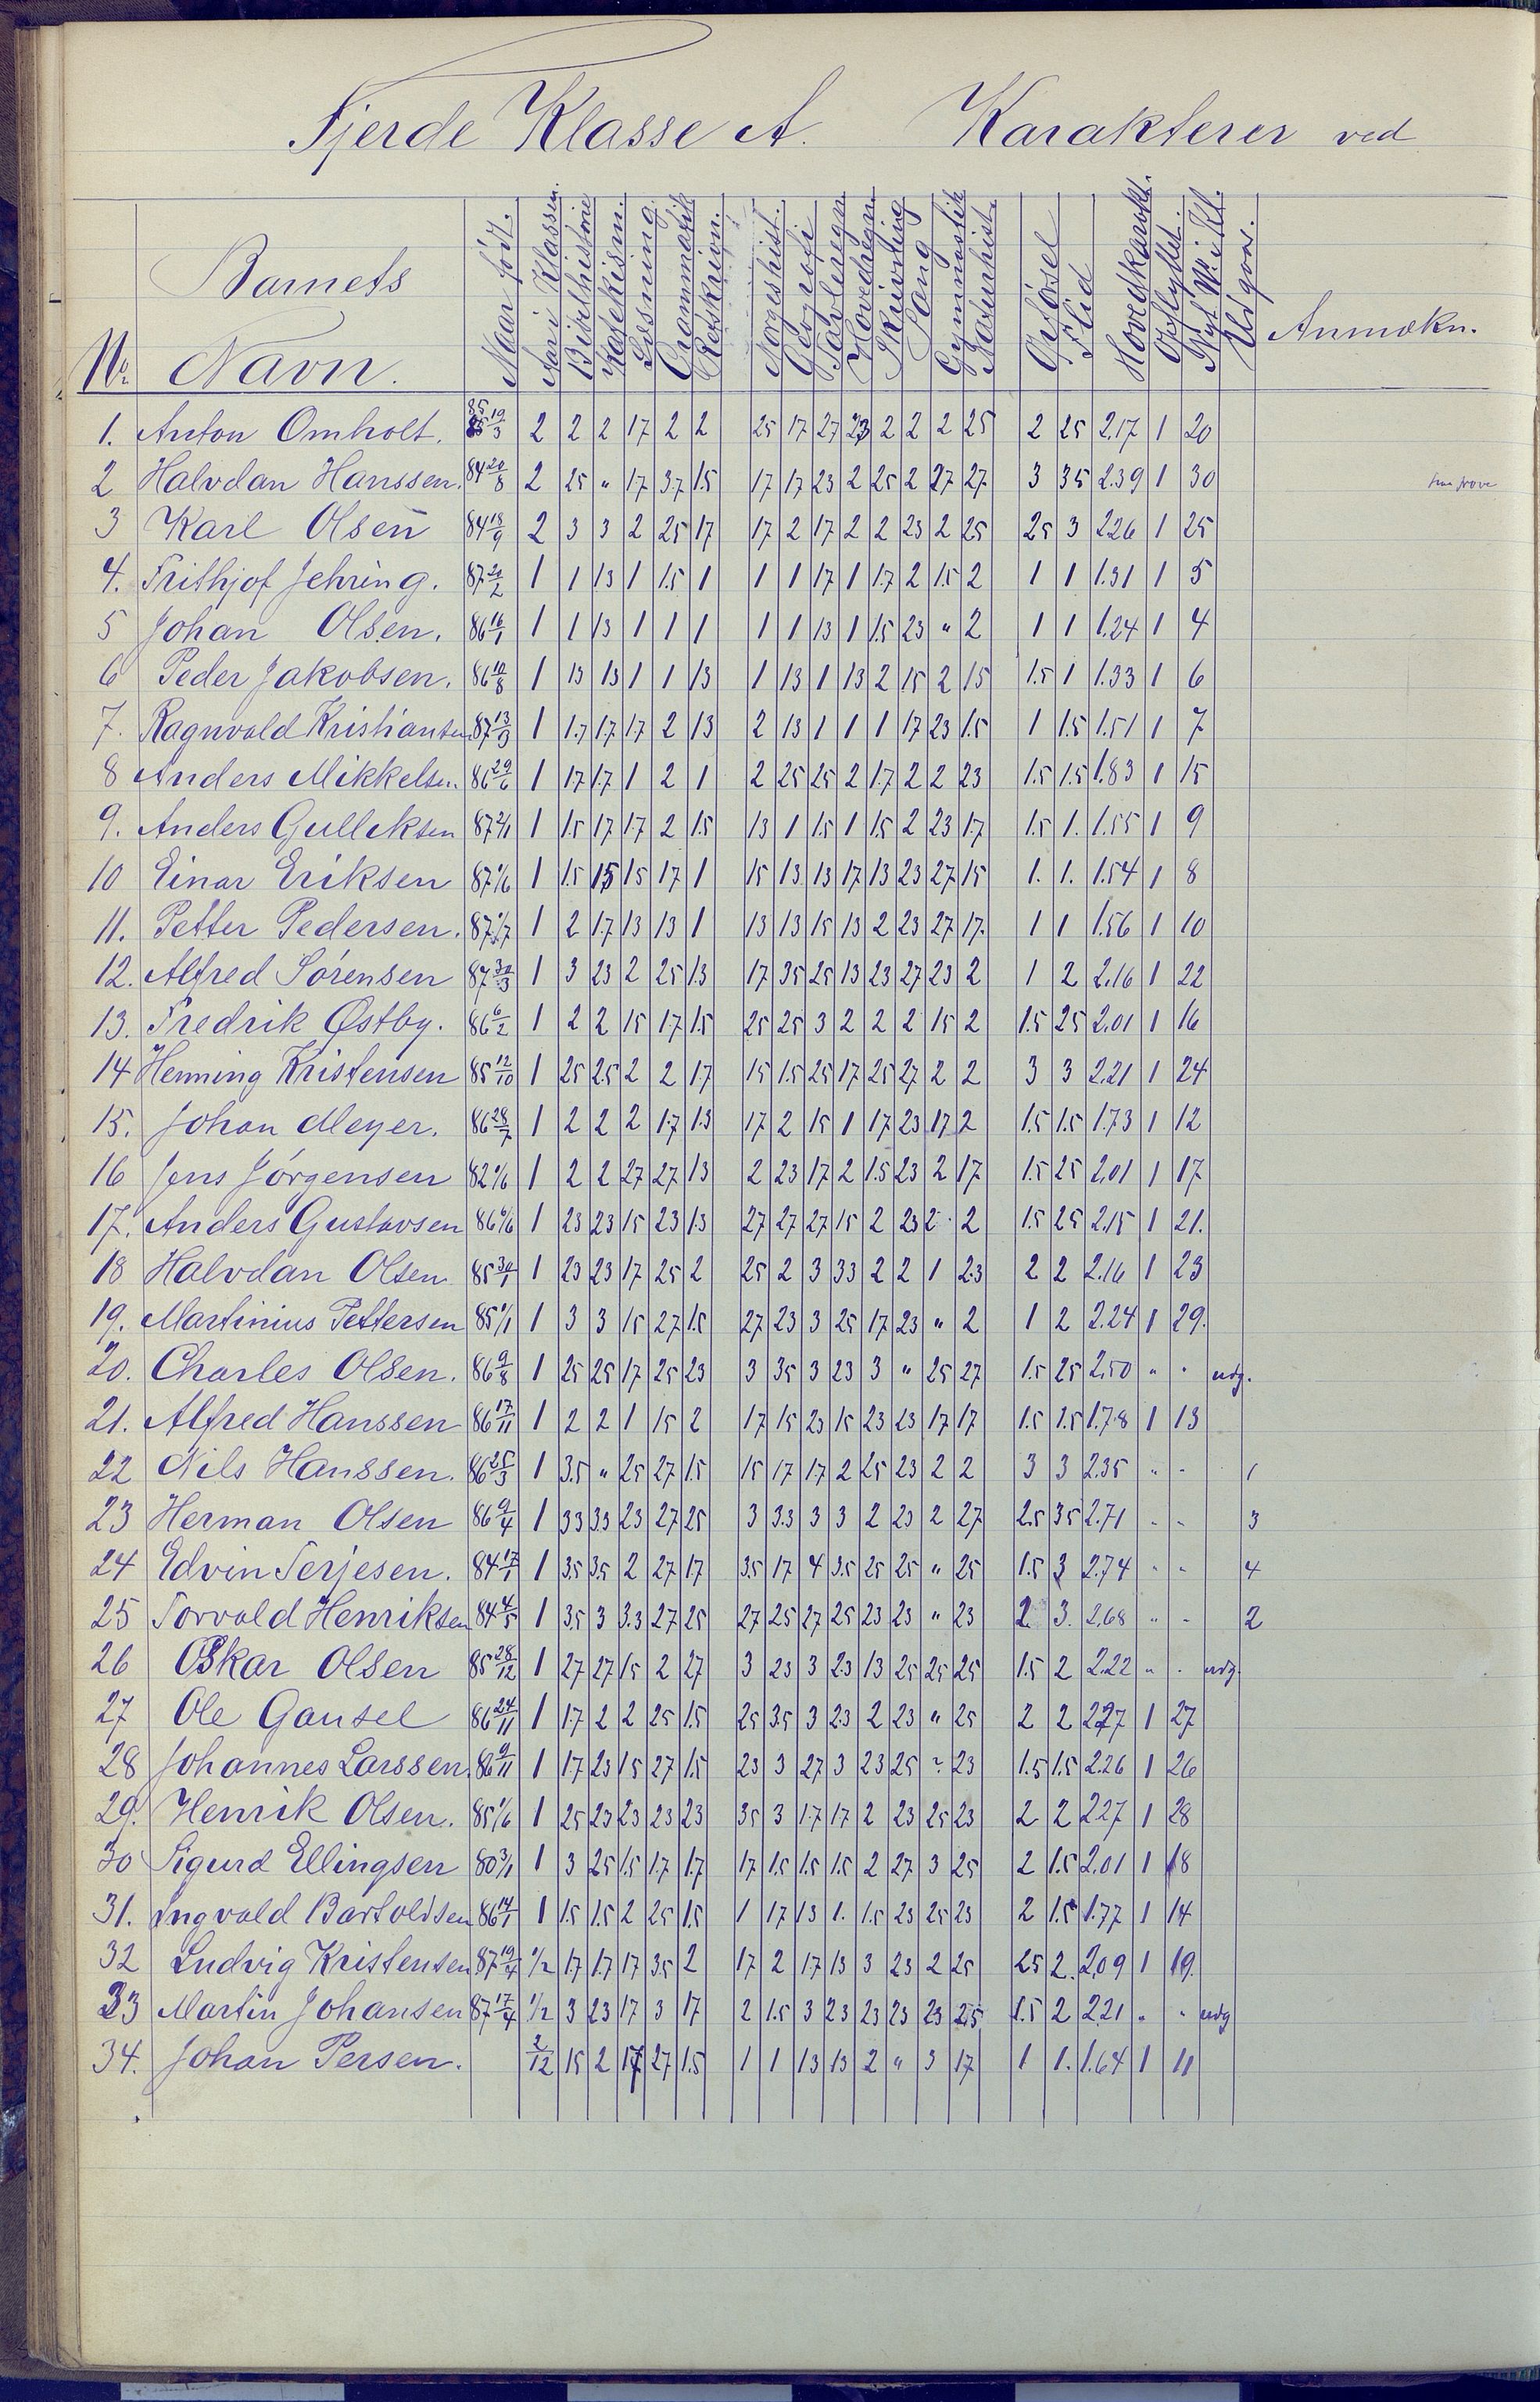 Fjerde Klasse A. Karakterer ved
Nr. Barnets Navn. Naar født. Aar i Klassen. Bibelhistorie Katekism. Læsning. Grammatik Retskrivn. Norgeshist. Geografi Tavleregn Hovedregn Skrivning Sang Gymnastik Naturhist. Opførsel Flid Hovedkarakt. Opflyttet Nyt Nr. i Kl. Udgaar. Anmækn.
1. Anton Omholt. 85 19/3 2 2 2 17 2 2 25 17 27 23 2 2 2 25 2 25 2.17 1 20
2 Halvdan Hanssen. 84 20/8 2 25 " 17 37 15 17 17 23 2 25 2 27 27 3 35 2.39 1 30
3 Karl Olsen 84 18/9 2 3 3 2 25 17 17 2 17 2 2 23 2 25 25 3 226 1 25
4. Frithjof Jehring. 87 20/2 1 1 13 1 1.5 1 1 1 17 1 1.7 2 1.5 2 1 1 1.31 1 5
5 Johan Olsen. 86 16/1 1 1 13 1 1 1 1 1 13 1 1.5 23 " 2 1 1 1.24 1 4
6 Peder Jakobsen. 86 10/8 1 13 13 1 1 13 1 13 1 13 2 15 2 15 1.5 1 1.33 1 6
7. Ragnvald Kristiansen 87 13/3 1 1.7 1.7 1.7 2 13 2 13 1 1 1 17 23 1.5 1 1.5 1.51 1 7
8 Anders Mikkelsen. 86 29/6 1 17 1.7 1 2 1 2 25 25 2 1.7 2 2 23 1.5 1.5 1.83 1 15
9. Anders Gulleksen 87 2/1 1 1.5 17 1.7 2 1.5 13 1 1.5 1 1.5 2 23 1.7 1.5 1. 1.55 1 9
10 Einar Eriksen 87 1/6 1 1.5 15 15 17 1 15 13 13 17 13 23 27 15 1. 1. 1.54 1 8
11. Petter Pedersen. 87 1/7 1 2 1.7 13 13 1 13 13 15 13 2 23 27 17. 1 1 1.56 1 10
12. Alfred Sørensen 87 30/3 1 3 23 2 25 13 17 35 25 13 23 27 23 2 1 2 2.16 1 22
13. Fredrik Østby. 86 6/2 1 2 2 15 1.7 1.5 25 25 3 2 2 2 15 2 1.5 25 2.01 1 16
14 Henning Kristensen 85 12/10 1 25 2.5 2 2 1.7 15 1.5 25 17 25 27 2 2 3 3 2.21 1 24
15. Johan Meyer. 86 28/7 1 2 2 2 1.7 1.3 17 2 15 1 17 23 17 2 1.5 1.5 1.73 1 12
16 Jens Jørgensen 82 6/6 1 2 2 27 27 13 2 23 17 2 1.5 23 2 17 1.5 25 2.01 1 17
17. Anders Gustavsen 86 6/6 1 23 23 15 23 1.3 27 27 27 15 2 23 2 2 1.5 25 2.15 1 21.
18 Halvdan Olsen 85 30/1 1 23 23 17 25 2 25 2 3 33 2 2 1 2.3 2 2 2.16 1 23
19. Martinius Pettersen 85 1/1 1 3 3 15 27 1.5 27 23 3 25 17 23 " 2 1 2 2.24 1 29.
20. Charles Olsen. 86 9/8 1 25 25 17 25 23 3 35 3 23 3 " 25 27 1.5 25 2.50 " " udg.
21. Alfred Hanssen 86 17/11 1 2 2 1 15 2 17 15 23 15 23 23 17 17 1.5 1.5 1.78 1 13
22 Nils Hanssen. 86 25/3 1 3.5 " 25 27 1.5 15 17 1.7 2 25 23 2 2 3 3 2.35 " " 1
23 Herman Olsen 86 9/4 1 33 3.3 23 27 25 3 3.3 3 3 2 23 2 27 2.5 35 2.71 " " 3
24 Edvin Terjesen. 84 17/1 1 3.5 3.5 2 27 17 3.5 17 4 3.5 25 25 " 25 1.5 3 2.74 " " 4
25 Torvald Henriksen 84 4/5 1 3.5 3 3.3 27 25 27 25 27 25 23 23 " 23 2. 3. 2.68 " " 2
26 Oskar Olsen 85 28/12 1 27 27 15 2 27 3 23 3 23 13 25 25 25 1.5 2 2.22 " " udg.
27 Ole Gausel 86 24/11 1 1.7 2 2 25 1.5 25 3.5 3 2.3 2 23 " 25 2 2 227 1 27
28 Johannes Larssen. 86 9/11 1 1.7 23 15 27 1.5 23 3 27 3 23 25 " 23 1.5 1.5 2.26 1 26
29. Henrik Olsen. 85 1/6 1 25 23 23 23 23 35 3 1.7 17 2 23 25 23 2 2 2.27 1 28
30 Sigurd Ellingsen 80 3/1 1 3 25 1.5 1.7 1.7 17 1.5 1.5 1.5 2 27 3 25 2 1.5 2.01 1 18
31. Ingvald Bartoldsen 86 14/1 1 1.5 1.5 2 25 1.5 1 17 13 1. 1.5 23 25 23 2 1.5 1.77 1 14
32 Ludvig Kristensen 87 19/4 1/2 17 1.7 17 3.5 2 17 2 17 13 3 23 2 25 25 2. 2.09 1 19.
33 Martin Johansen 87 17/4 1/2 3 23 17 3 17 2 1.5 3 23 23 23 23 2.5 1.5 2 2.21 " " udg
34. Johan Persen. 2/12 15 2 17 27 1.5 1 1 13 13 2 " 3 17 1 1. 1.64 1 11